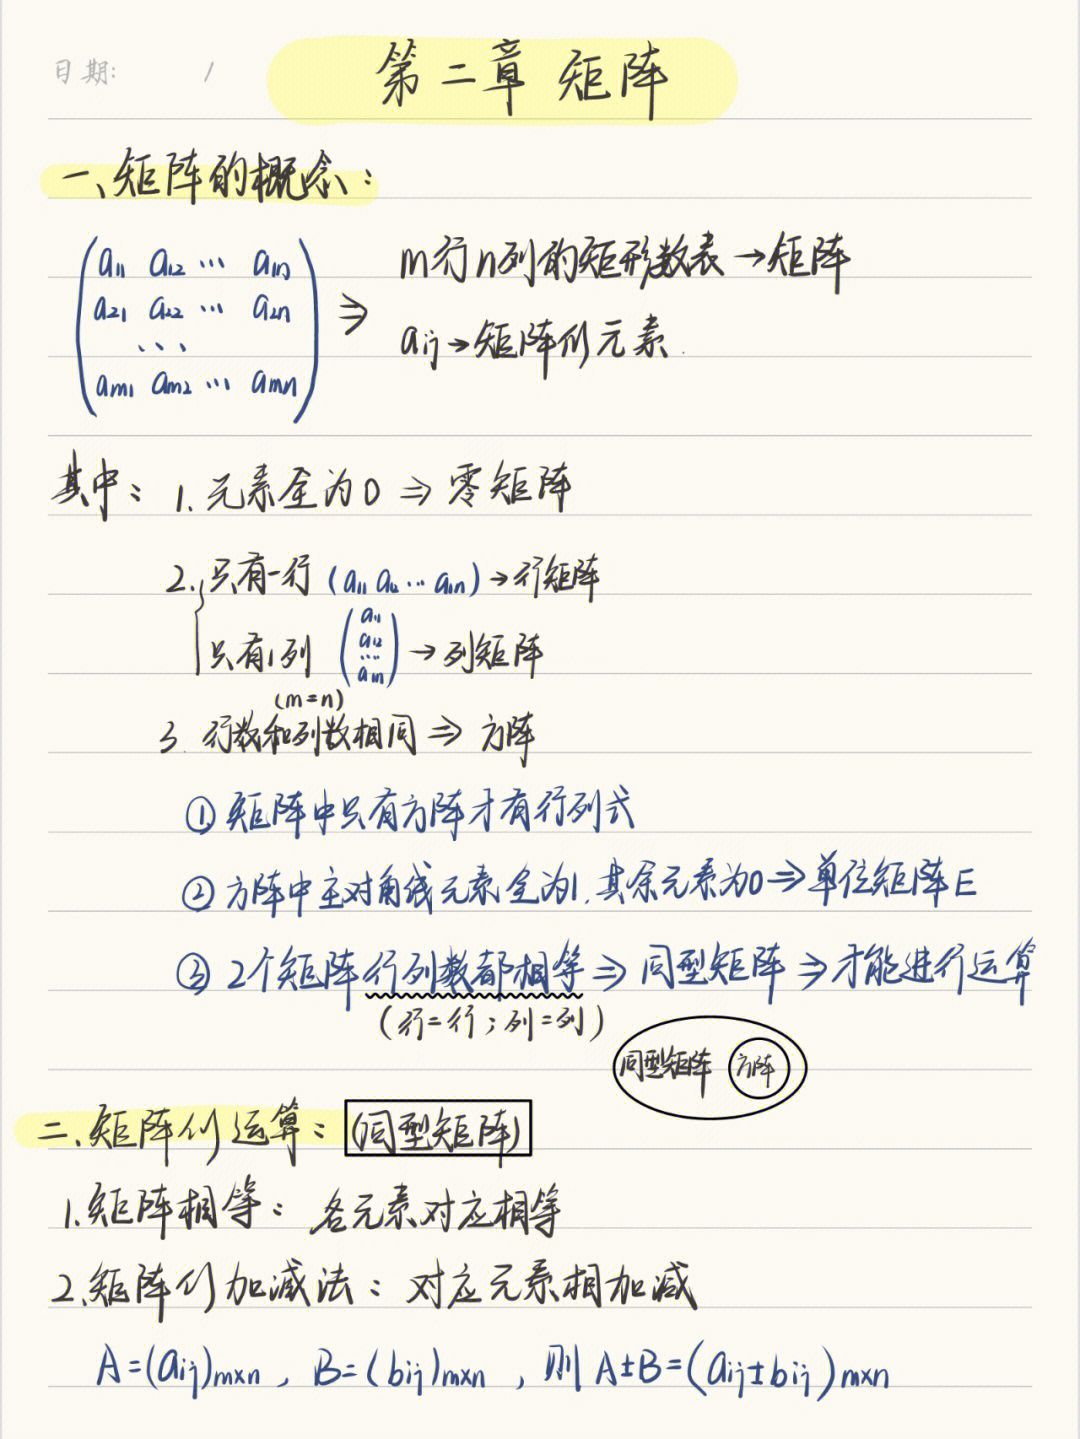 日期: /
第二章 矩阵
一、矩阵的概念：
a₁₁ a₁₂ ⋯ a₁ₙ
a₂₁ a₂₂ ⋯ a₂ₙ
⋯
aₘ₁ aₘ₂ ⋯ aₘₙ
⇒
m行n列的矩形数表→矩阵
aᵢⱼ→矩阵的元素.
其中：1. 元素全为0 ⇒ 零矩阵
2. 只有一行 (a₁₁ a₁₂ ⋯ a₁ₙ)→行矩阵
只有1列 (a₁₁ a₁₂ ⋯ a₁ₙ) → 列矩阵
(m=n)
3. 行数和列数相同 ⇒ 方阵
① 矩阵中只有方阵才有行列式
② 方阵中主对角线元素全为1, 其余元素为0⇒单位矩阵E
③ 2个矩阵行列数都相等 ⇒ 同型矩阵 ⇒才能进行运算
(行=行；列=列)
同型矩阵 方阵
二、矩阵的运算：(同型矩阵)
1.矩阵相等：各元素对应相等
2.矩阵的加减法：对应元素相加减
A=(aᵢⱼ)m×n , B=(bᵢⱼ)m×n , 则 A±B=(aᵢⱼ±bᵢⱼ)m×n